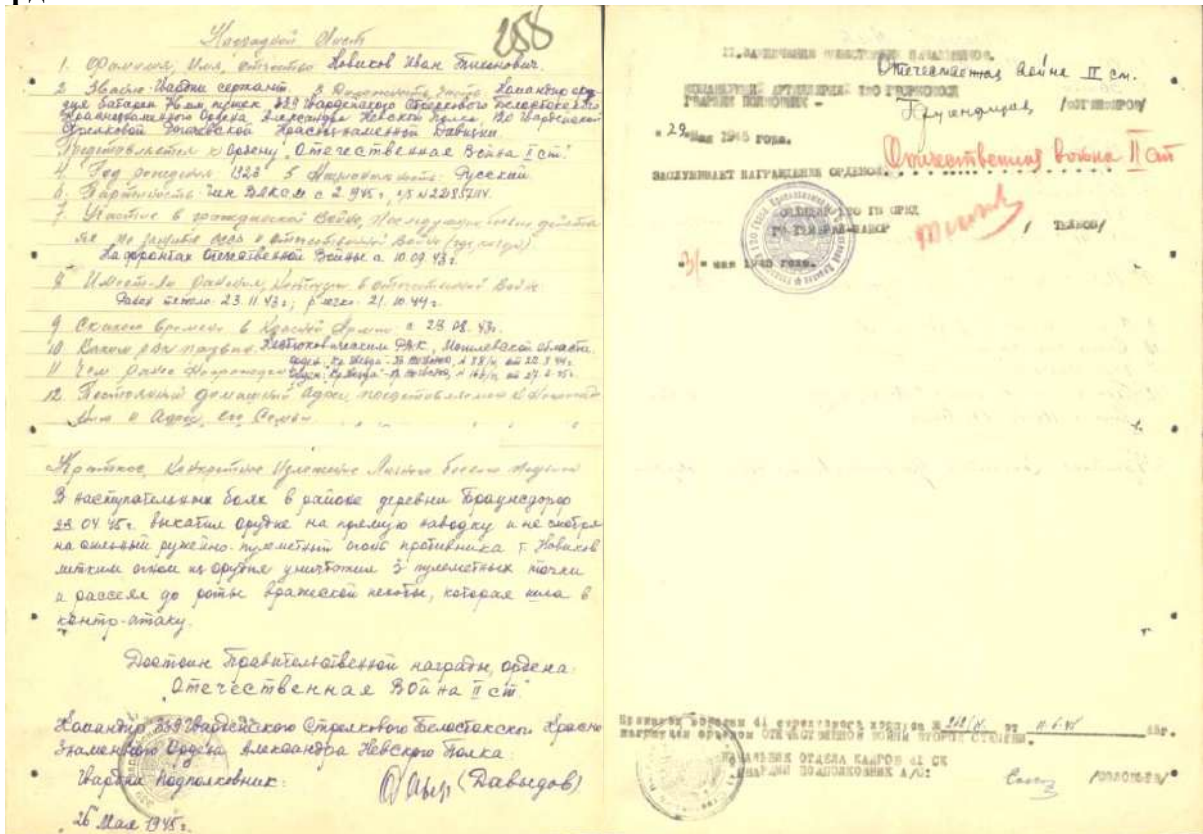 258
Наградной Лист
1. Фамилия, Имя, отчество Новиков Иван
2. Звание Гвардии сержант. 3 Должность, часть Командир ору-
дия батареи 76 мм пушек 339 Гвардейского Стрелкового Белостокского
Краснознаменного Ордена Александра Невского Полка, 120 Гвардейской
Стрелковой Рогачевской Краснознаменной Дивизии.
Представляется к Ордену "Отечественная Война II ст."
4. Год рождения 1923 5 Национальность Русский
6. Партийность Член ВЛКСМ с
7. Участие в гражданской войне, последующие боевые действи-
ях по защите СССР и отечественной войне (где, когда)
На фронтах Отечественной Войны с 10.09.43 г.
8 Имеет ли ранения, контузии в отечественной войне
Ранен тяжело 23.11.43 г; легко 21.10.44 г.
9 С какого времени в Красной Армии с 23.08.43 г.
10. Каким РВК призван РВК, Могилевской области.
11 Чем ранее награжден
12. Постоянный домашний адрес представляемого к награжде-
нию и адрес его семьи
Краткое, конкретное изложение личного боевого подвига
В наступательных боях в районе деревни Браунсдорф
23.04.45 г. выкатил орудие на прямую наводку и не смотря
на сильный ружейно-пулеметный огонь противника т. Новиков
метким огнем из орудия уничтожил 3 пулеметных точки
и рассеял до роты вражеской пехоты, которая шла в
контр-атаку.
Достоин Правительственной награды, ордена:
"Отечественная Война II ст."
Командир 339 Гвардейского Стрелкового Белостокского Красно
Знаменного Ордена Александра Невского Полка
Гвардии Подполковник: (Давыдов)
26 Мая 1945 г.
II. ЗАКЛЮЧЕНИЕ НАЧАЛЬНИКОВ.
Отечественная война II ст.
КОМАНДУЮЩИЙ АРТИЛЛЕРИЕЙ 120
ГВАРДИИ ПОЛКОВНИК -
"29" мая 1945 года.
Отечественная война II ст
ЗАСЛУЖИВАЕТ НАГРАЖДЕНИЯ ОРДЕНОМ
КОМАНДИР 120 ГВ
ГВ ГЕНЕРАЛ-МАЙОР
"31" мая 1945 года.
Приказом войскам 41 стрелкового корпуса № от
награжден орденом ОТЕЧЕСТВЕННОЙ ВОЙНЫ ВТОРОЙ СТЕПЕНИ.
НАЧАЛЬНИК ОТДЕЛА КАДРОВ 41 СК
ГВАРДИИ ПОДПОЛКОВНИК А/С: